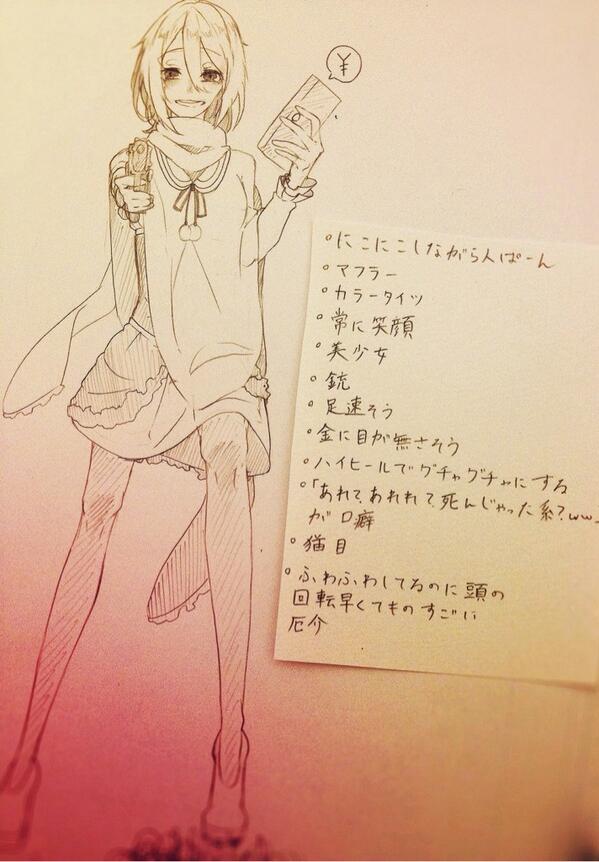 ¥
。にこにこしながら人ぱーん
。マフラー
。カラータイツ
。常に笑顔
。美少女
。銃
。足速そう
。金に目が無さそう
。ハイヒールでグチャグチャにする
。「あれて、あれれて、死んじゃった系?ww
が口癖
。猫目
。ふわふわしてるのに頭の
回転早くてものすごい
厄介